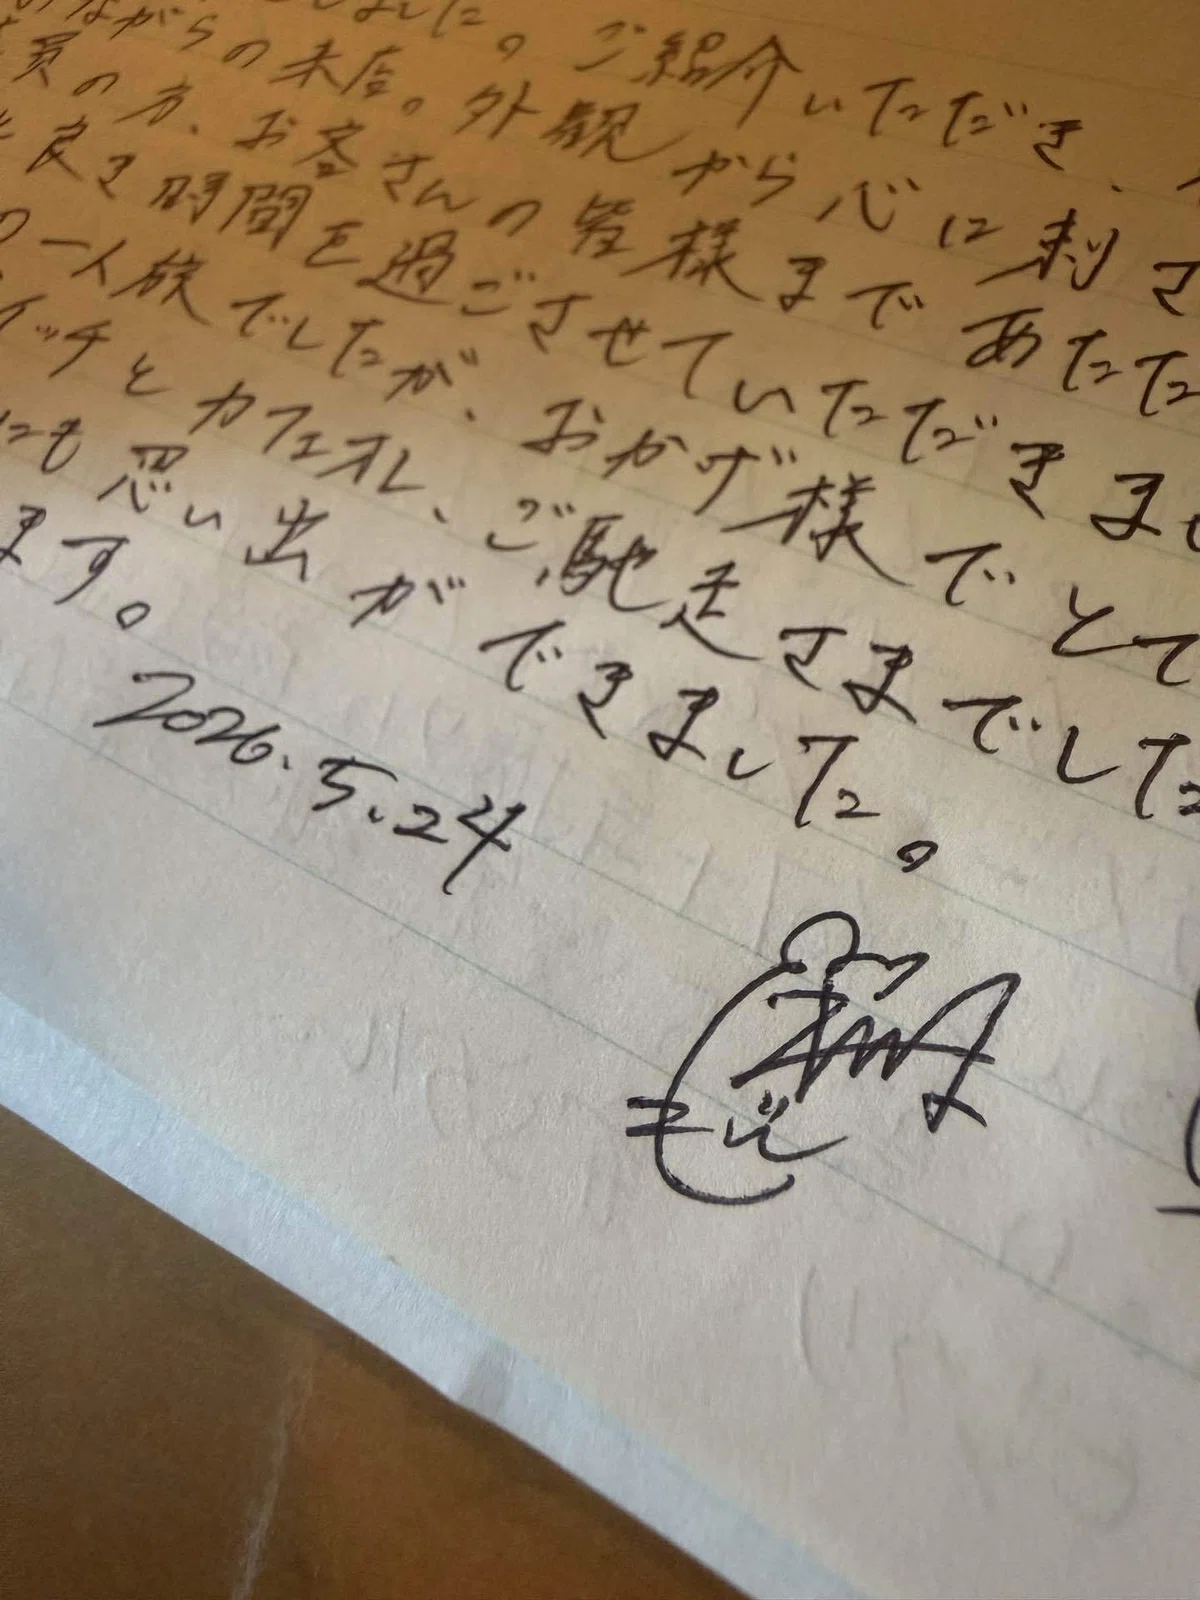 しました。ご紹介いただき、
ながらの来店。外観から心に刺さ
員の方、お客さんの皆様まであたた
良き時間を過ごさせていただきまし
の一人旅でしたが、おかげ様でとて
イッチとカフェオレ、ご馳走さまでした
にも思い出ができました。
ます。
2026.5.24